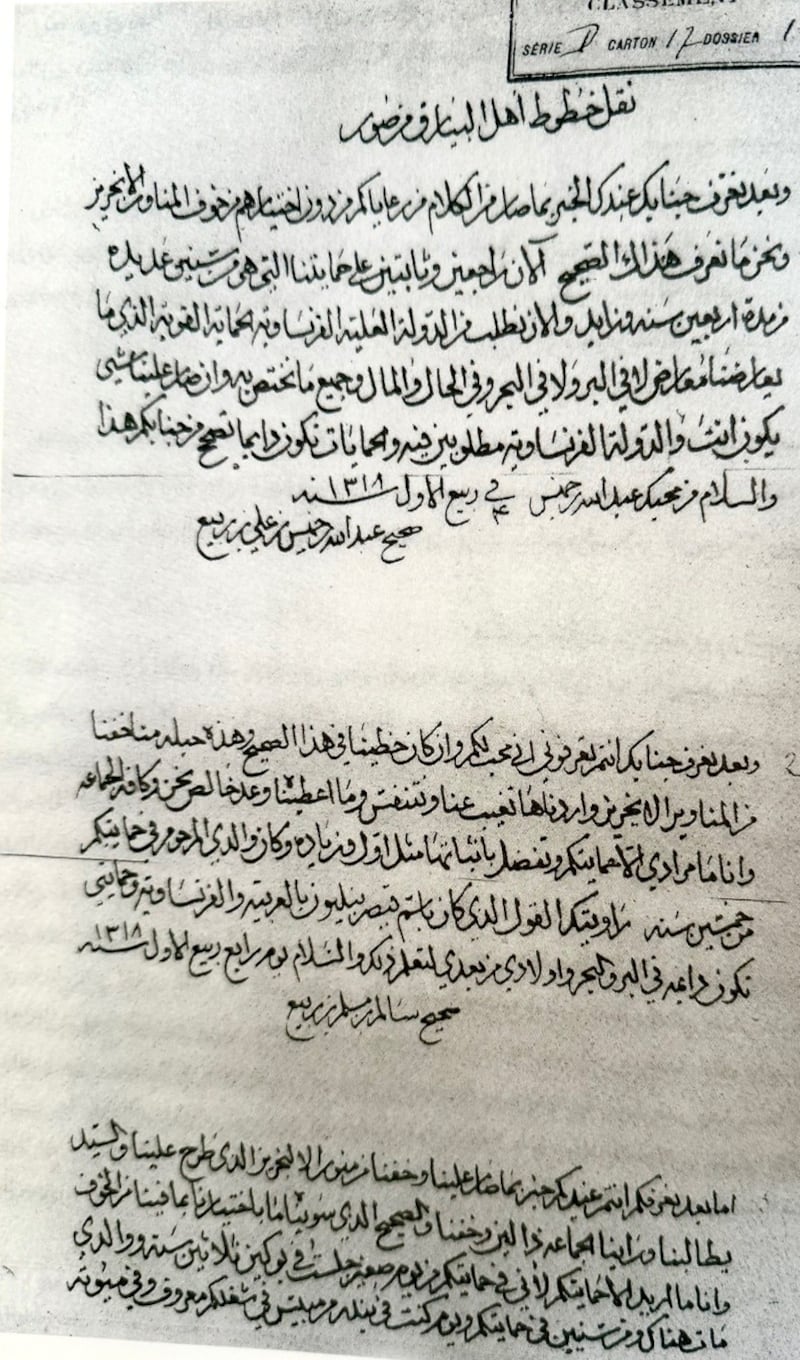 CLASSEMENT
SÉRIE D CARTON 17 DOSSIER 1
نقل خطوط أهل البيارق من صور
وبعد نعرف جنابك عندك الخبر بما صار من الكلام من رعاياكم من دون اختيارهم من خوف المناور الانجريز
ونحن ما نعرف هذاك الصحيح الآن راجعين وثابتين على حمايتنا التي هي من سنين عديده
من مدة اربعين سنه وزايد والان نطلب من الدولة العلية الفرنساويه الحماية القوية الذي ما
يعارضنا معارض لا في البر ولا في البحر وفي الحال والمال وجميع ما نختص به وان صار علينا شي
يكون انت والدولة الفرنساويه مطلوبين فيه والحمايات تكون دايما تصح من جنابكم هذا
والسلام من محبك عبدالله بن خميس في ٤ ربيع الاول سنه ١٣١٨
صحيح عبدالله بن خميس بن علي بن ربيع
2
وبعد نعرف جنابك انتم تعرفوني اني محب لكم وان كان حطينا في هذا الصحيح وهذه حيله منا خفنا
من المناوير الانجريز واردناها تغيب عنا ونتنفس وما اعطينا وعد خالص نحن وكافة الجماعه
وانا ما مرادي الا حمايتكم وتفضل باثباتها مثل اول وزياده وكان والدي المرحوم في حمايتكم
من خمسين سنه القول الذي كان باسم قيصر نبليون بالعربية والفرنساوية وحمايتي
تكون داعيه في البر والبحر واولادي من بعدي لتعلم ذلك والسلام يوم رابع ربيع الاول سنه ١٣١٨
صحيح سالم بن مسلم بن ربيع
اما بعد نعرفكم انتم عندكم خبر بما صار علينا وخفنا من منور الانجريز الذي طرح علينا والسيد
يطالبنا وراينا الجماعه وخفنا والصحيح الذي سويناه ما باختيارنا بما فينا من الخوف
وانا ما اريد الا حمايتكم لأني في حمايتكم من يوم صغير جلست في ثلاثين سنه ووالدي
مات هناك ومن سنين في حمايتكم ويوم كنت في في شغلكم معروف وفي